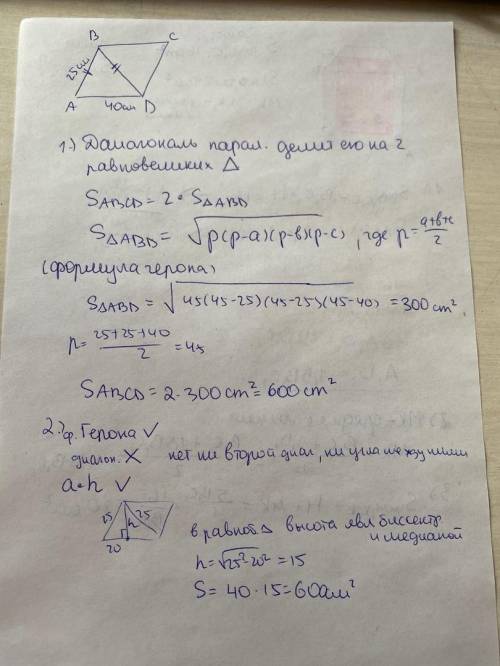 B C
25см
A 40см D
1.) Диагональ парал. делит его на 2
равновеликих Δ
SABCD = 2 · SΔABD
SΔABD = √p(p-a)(p-в)(p-c), где p = a+в+c/2
(формула герона)
SΔABD = √45(45-25)(45-25)(45-40) = 300 cm²,
p = 25+25+40/2 = 45
SABCD = 2 · 300 cm² = 600 cm²
2.) ф. Герона ✓
диагон. X нет ни второй диаг, ни угла между ними
a·h ✓
25 h 25
20
в равноб Δ высота явл биссектр
и медианой
h = √25²-20² = 15
S = 40 · 15 = 600см²